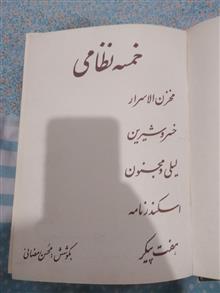 خمسه نظامی
مخزن الاسرار
خسرو و شیرین
لیلی و مجنون
اسکندرنامه
هفت پیکر
بکوشش: محسن رمضانی